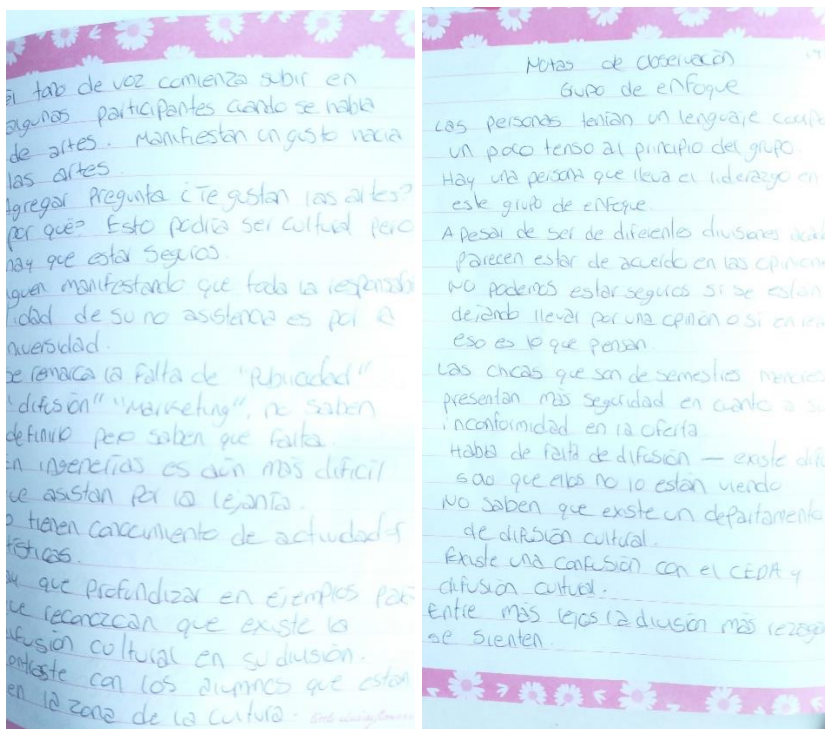 El tono de voz comienza subir en
algunas participantes cuando se habla
de artes. Manifiestan un gusto hacia
las artes.
Agregar Pregunta ¿Te gustan las artes?
por qué? Esto podría ser cultural pero
hay que estar seguros.
guen manifestando que toda la responsabi
lidad de su no asistencia es por la
niversidad.
se remarca la falta de "Publicidad"
"difusión" "Marketing", no saben
definirlo pero saben que falta.
En ingenerías es aún mas dificil
que asistan por la lejanía.
o tienen conocimiento de actividades
tísticas.
ay que profundizar en ejemplos para
que reconozcan que existe la
difusión cultural en su división.
contraste con los alumnos que estan
en la zona de la cultura.
Notas de observación
Grupo de enfoque
Las personas tenían un lenguaje corpo
un poco tenso al principio del grupo.
Hay una persona que lleva el liderazgo en
este grupo de enfoque.
A pesar de ser de diferentes divisiones
parecen estar de acuerdo en las opinione
No podemos estar seguros si se estan
dejando llevar por una opinión o si en rea
eso es lo que piensan.
Las chicas que son de semestres menores
presentan más seguridad en cuanto a s
inconformidad en la oferta
Habla de falta de difusión — existe difu
solo que ellos no lo están viendo
No saben que existe un departamento
de difusión cultural.
Existe una confusión con el CEDA y
difusión cultural.
Entre más lejos la división más rezago
se sienten.